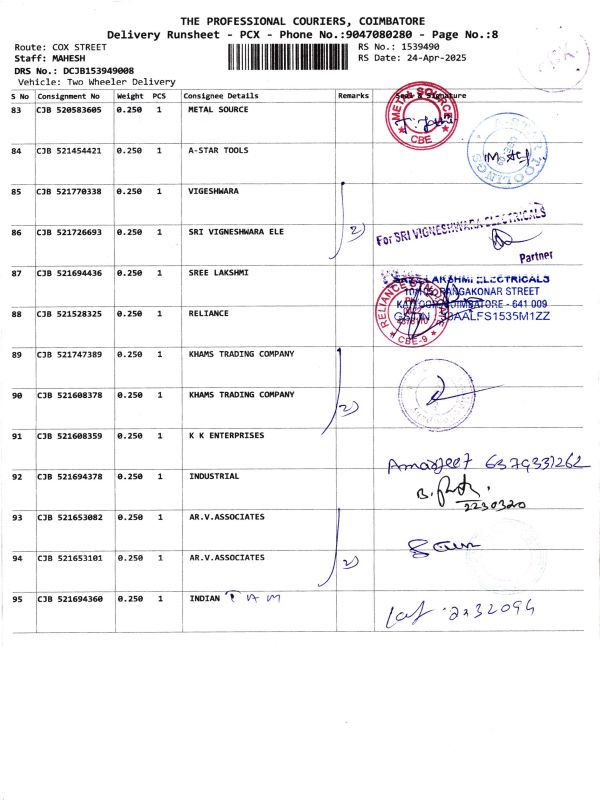 THE PROFESSIONAL COURIERS, COIMBATORE
Delivery Runsheet - PCX - Phone No.:9047080280 - Page No.:8
Route: COX STREET RS No.: 1539490
Staff: MAHESH RS Date: 24-Apr-2025
DRS No.: DCJB153949008
Vehicle: Two Wheeler Delivery
S No Consignment No Weight PCS Consignee Details Remarks Seal & Signature
83 CJB 520583605 0.250 1 METAL SOURCE
METAL SOURCE
CBE
84 CJB 521454421 0.250 1 A-STAR TOOLS
TOOLINGS
85 CJB 521770338 0.250 1 VIGESHWARA
86 CJB 521726693 0.250 1 SRI VIGNESHWARA ELE 2)
For SRI VIGNESHWARA ELECTRICALS
Partner
87 CJB 521694436 0.250 1 SREE LAKSHMI
LAKSHMI ELECTRICALS
RANGAKONAR STREET
COIMBATORE - 641 009
88 CJB 521528325 0.250 1 RELIANCE
RELIANCE
CBE-9
89 CJB 521747389 0.250 1 KHAMS TRADING COMPANY
90 CJB 521608378 0.250 1 KHAMS TRADING COMPANY 2)
91 CJB 521608359 0.250 1 K K ENTERPRISES
Amarjeet 6379331262
92 CJB 521694378 0.250 1 INDUSTRIAL
2230320
93 CJB 521653082 0.250 1 AR.V.ASSOCIATES
94 CJB 521653101 0.250 1 AR.V.ASSOCIATES 2)
95 CJB 521694360 0.250 1 INDIAN T A M
2232094